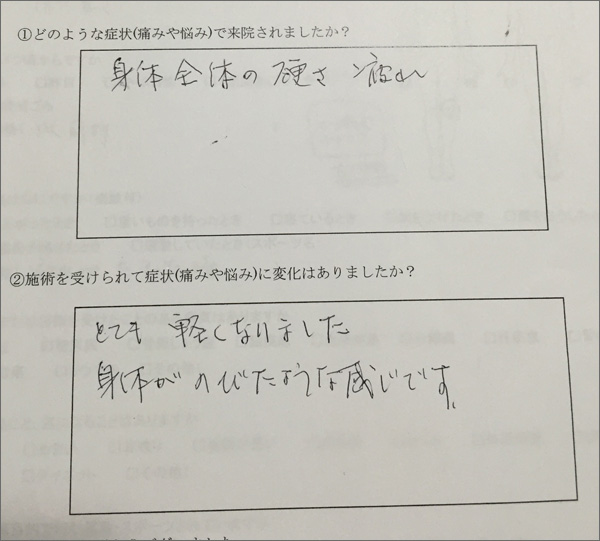 ①どのような症状(痛みや悩み)で来院されましたか？
身体全体の硬さ 疲れ
②施術を受けられて症状(痛みや悩み)に変化はありましたか？
とても 軽くなりました
身体がのびたような感じです。